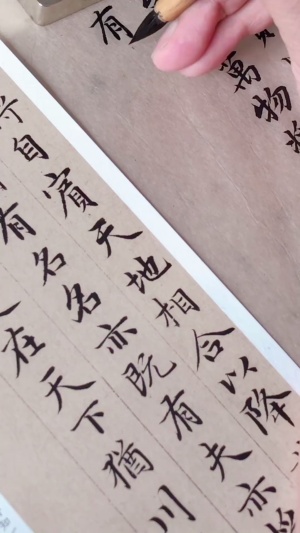 萬物
有
自賓天地相合以降
有名名亦既有夫亦
在天下猶川